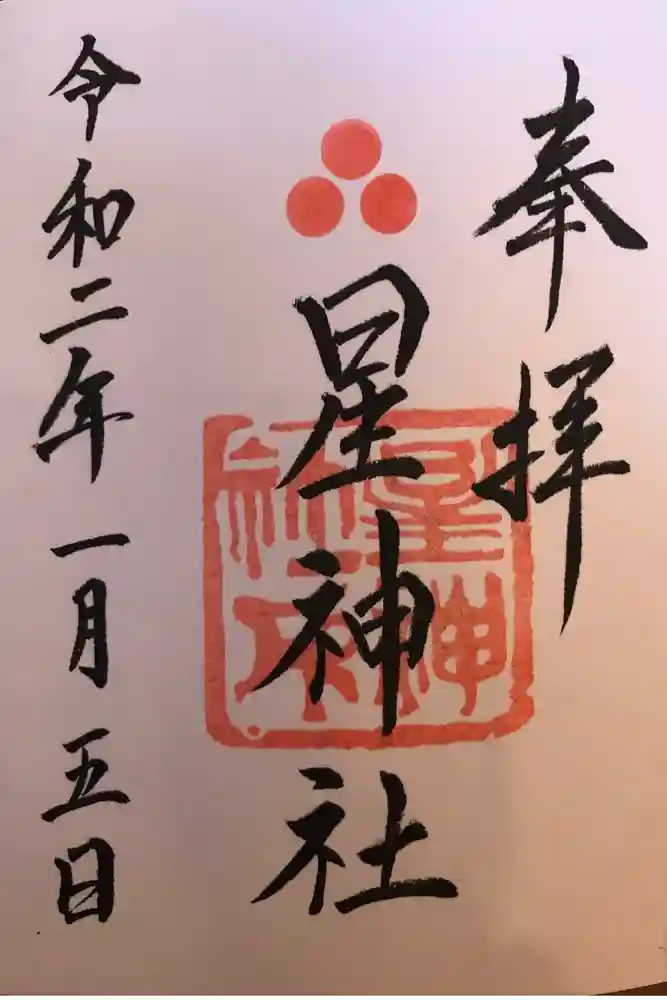 奉拝
星神社
令和二年一月五日